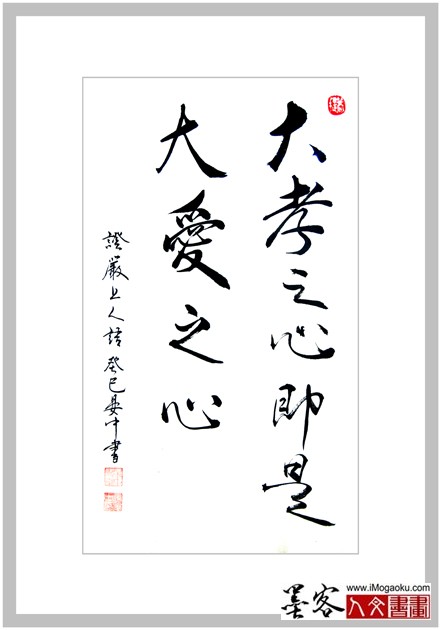 大孝之心即是
大愛之心
證嚴上人語 癸巳晏中書
墨客
www.iMogaoku.com
人文書畫